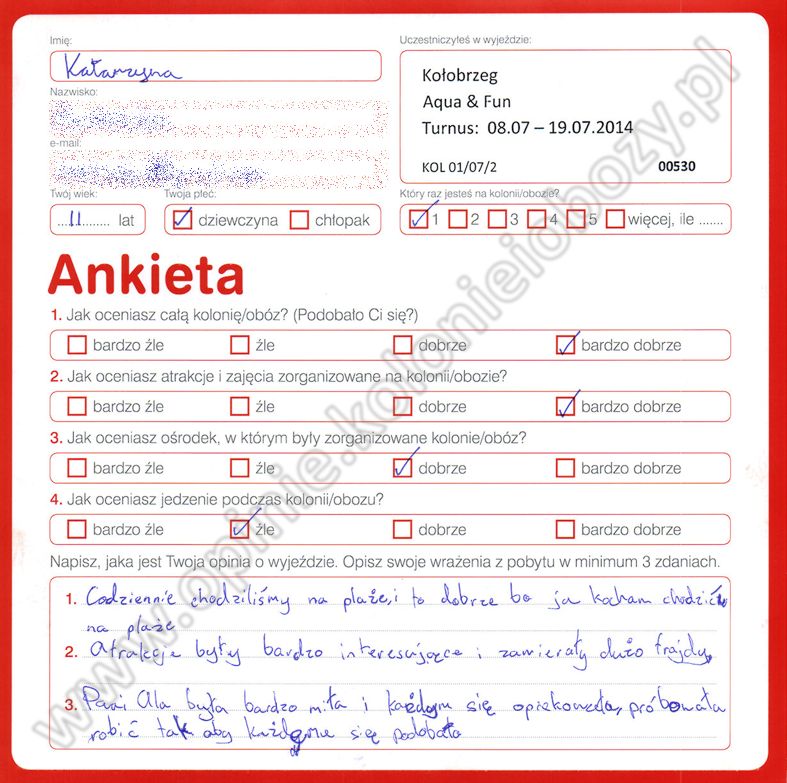 Imię:
Katarzyna
Nazwisko:
e-mail:
Uczestniczyłeś w wyjeździe:
Kołobrzeg
Aqua & Fun
Turnus: 08.07 – 19.07.2014
KOL 01/07/2 00530
Twój wiek:
....11........ lat
Twoja płeć:
dziewczyna chłopak
Który raz jesteś na kolonii/obozie?
1 2 3 4 5 więcej, ile .......
Ankieta
1. Jak oceniasz całą kolonię/obóz? (Podobało Ci się?)
bardzo źle źle dobrze bardzo dobrze
2. Jak oceniasz atrakcje i zajęcia zorganizowane na kolonii/obozie?
bardzo źle źle dobrze bardzo dobrze
3. Jak oceniasz ośrodek, w którym były zorganizowane kolonie/obóz?
bardzo źle źle dobrze bardzo dobrze
4. Jak oceniasz jedzenie podczas kolonii/obozu?
bardzo źle źle dobrze bardzo dobrze
Napisz, jaka jest Twoja opinia o wyjeździe. Opisz swoje wrażenia z pobytu w minimum 3 zdaniach.
1. Codziennie chodziliśmy na plażę, i to dobrze bo ja kocham chodzić
na plażę
2. Atrakcje były bardzo interesujące i zawierały dużo frajdy.
3. Pani Ala była bardzo miła i każdym się opiekowała, próbowała
robić tak aby każdemu się podobało
www.opinie.kolonieiobozy.pl